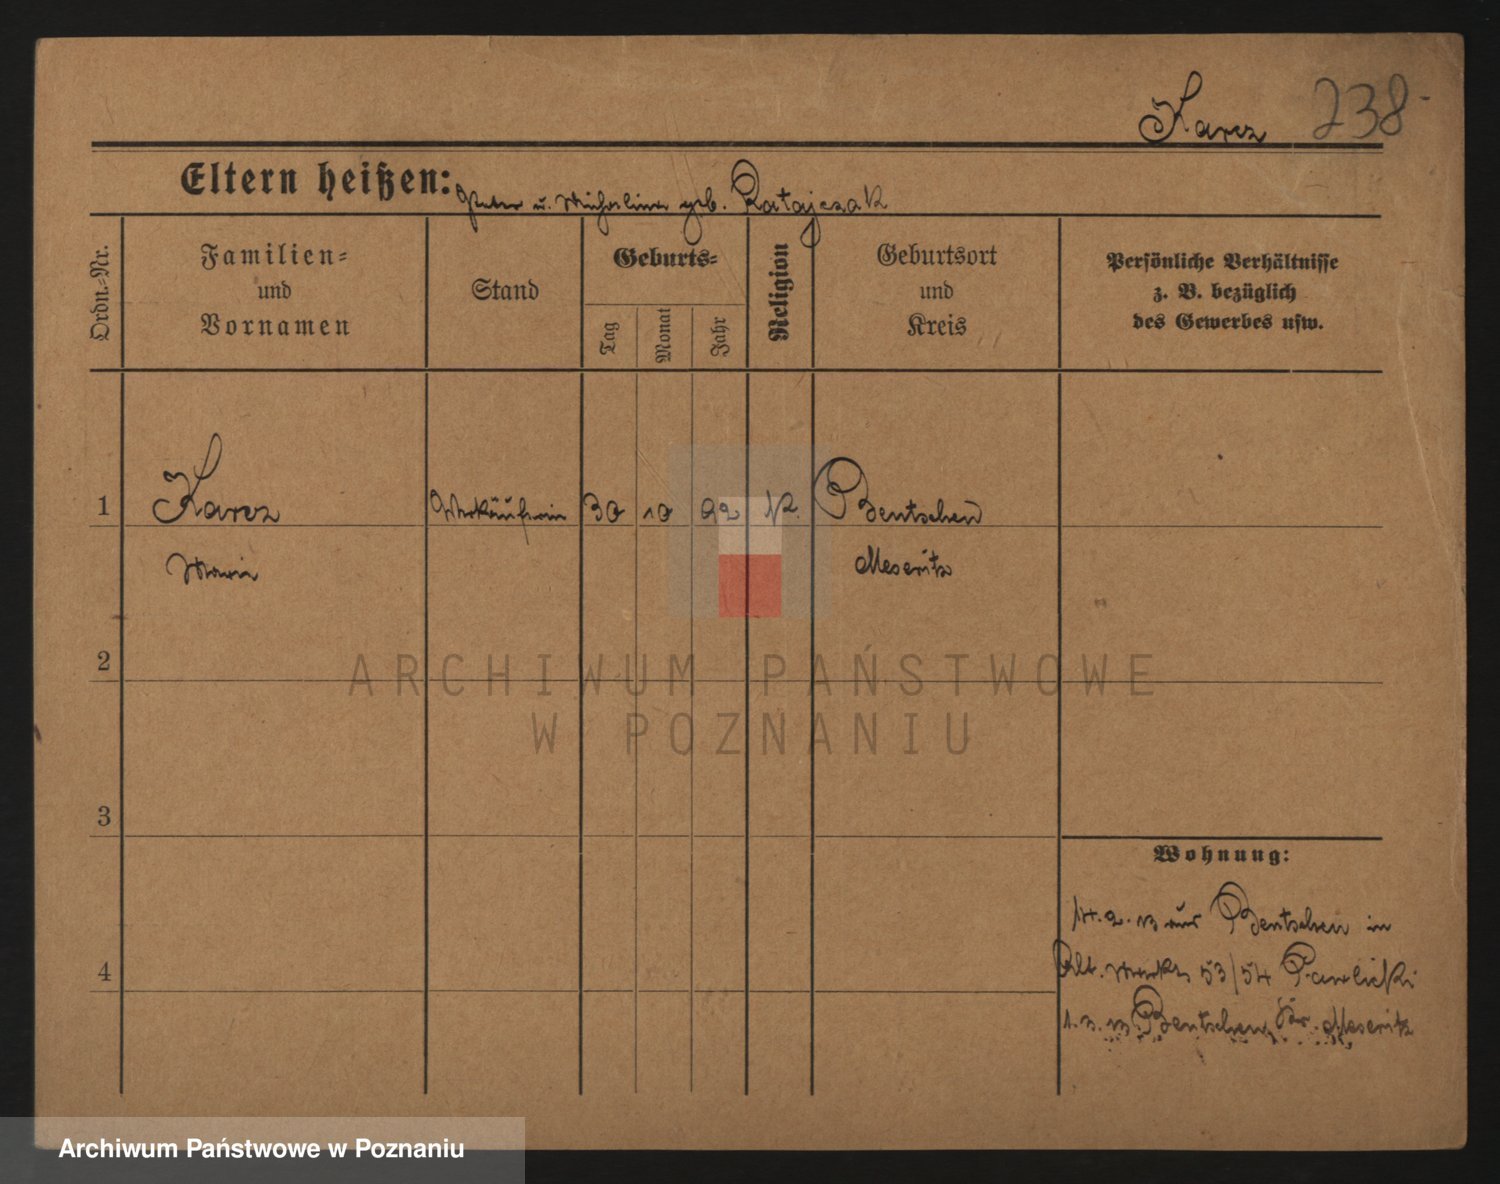 Karcz 238
Eltern heißen: Peter u. Michalina geb. Ratajczak
Ordn.-Nr.
Familien-
und
Vornamen
Stand
Geburts-
Tag
Monat
Jahr
Religion
Geburtsort
und
Kreis
Persönliche Verhältnisse
z. B. bezüglich
des Gewerbes usw.
1 Karcz Verkäuferin 30 10 92 K. Bentschen
Maria Meseritz
2
ARCHIWUM PAŃSTWOWE
W POZNANIU
3
Wohnung:
14. 2. 13 aus Bentschen in
Alt. Markt 53/54 Pawlicki
4
1. 3. 13 Bentschen, Kr. Meseritz
Archiwum Państwowe w Poznaniu